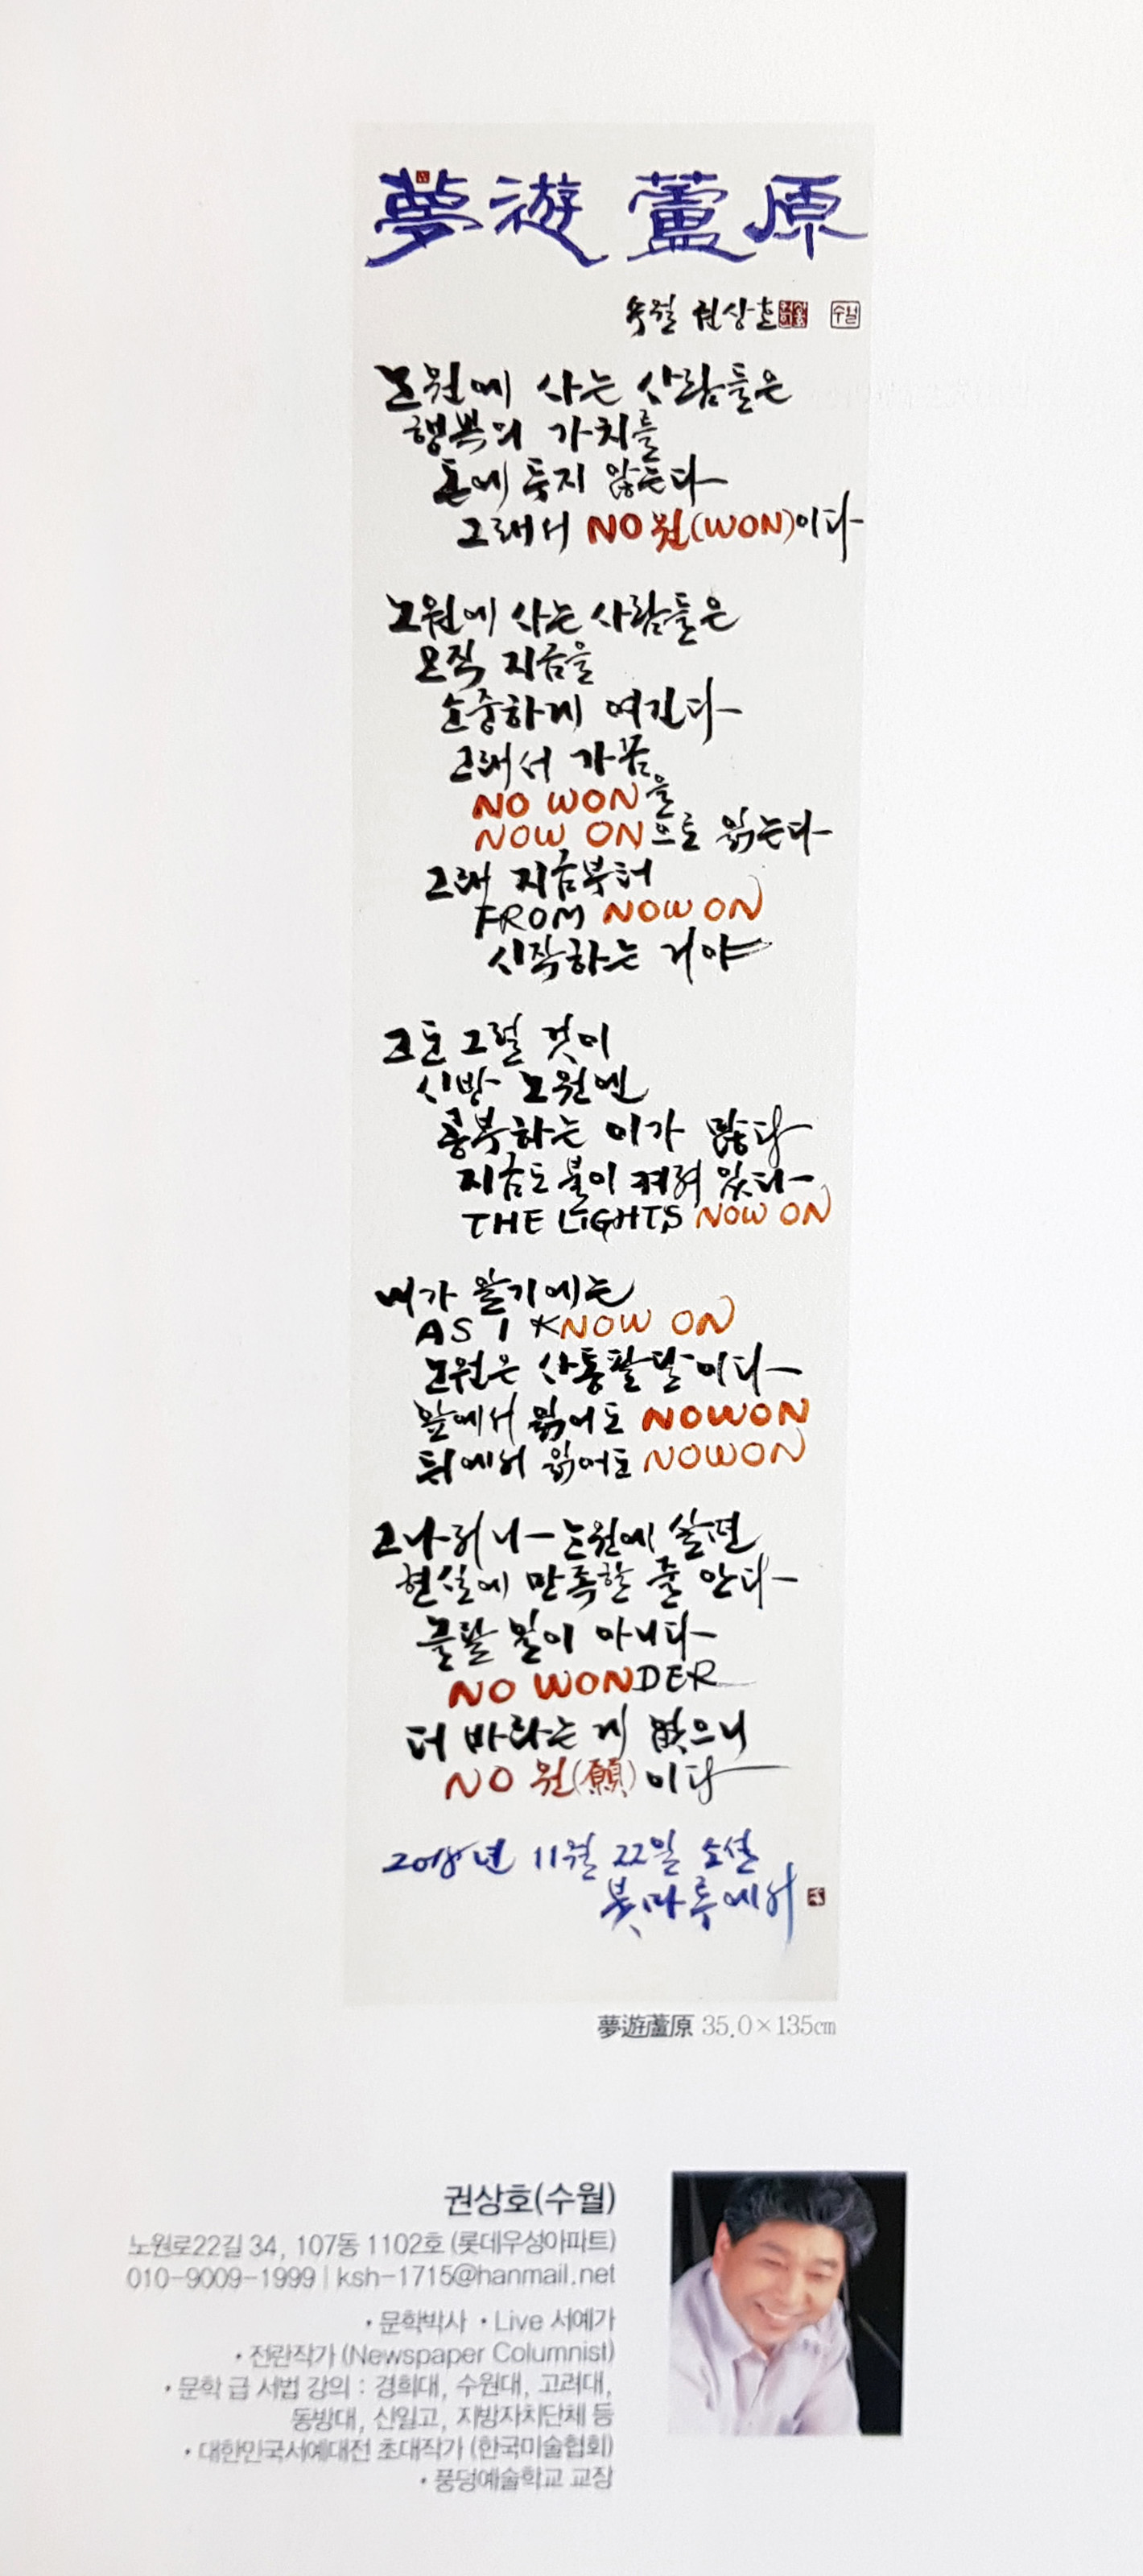 夢遊蘆原
수월 권상호 수월
노원에 사는 사람들은
행복의 가치를
돈에 두지 않는다
그래서 NO원(WON)이다
노원에 사는 사람들은
오직 지금을
소중하게 여긴다
그래서 가끔
NO WON을
NOW ON으로 읽는다
그래 지금부터
FROM NOW ON
시작하는 거야
또 그럴 것이
시방 노원엔
공부하는 이가 많다
지금도 불이 켜져 있다
THE LIGHTS NOW ON
내가 알기에는
AS I KNOW ON
노원은 사통팔달이다
앞에서 읽어도 NOWON
뒤에서 읽어도 NOWON
그나저나 노원에 살면
현실에 만족할 줄 안다
놀랄 일이 아니다
NO WONDER
더 바라는 게 없으니
NO 원(願)이다
2018년 11월 22일 소설
붓마루에서
夢遊蘆原 35.0×135cm
권상호(수월)
노원로22길 34, 107동 1102호 (롯데우성아파트)
010-9009-1999 | ksh-1715@hanmail.net
・문학박사 ・Live 서예가
・전란작가 (Newspaper Columnist)
・문학 급 서법 강의 : 경희대, 수원대, 고려대,
동방대, 신일고, 지방자치단체 등
・대한민국서예대전 초대작가 (한국미술협회)
・풍덩예술학교 교장